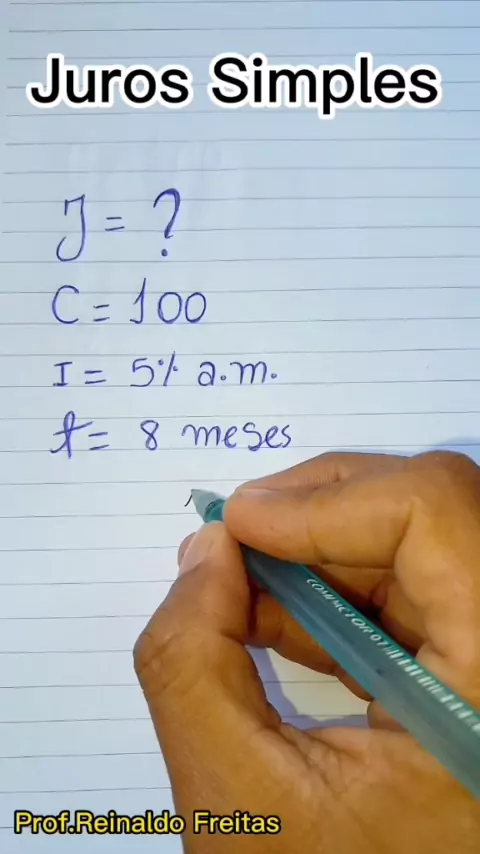 Juros Simples
J = ?
C = 100
I = 5% a.m.
t = 8 meses
COMPACTOR 07
Prof.Reinaldo Freitas